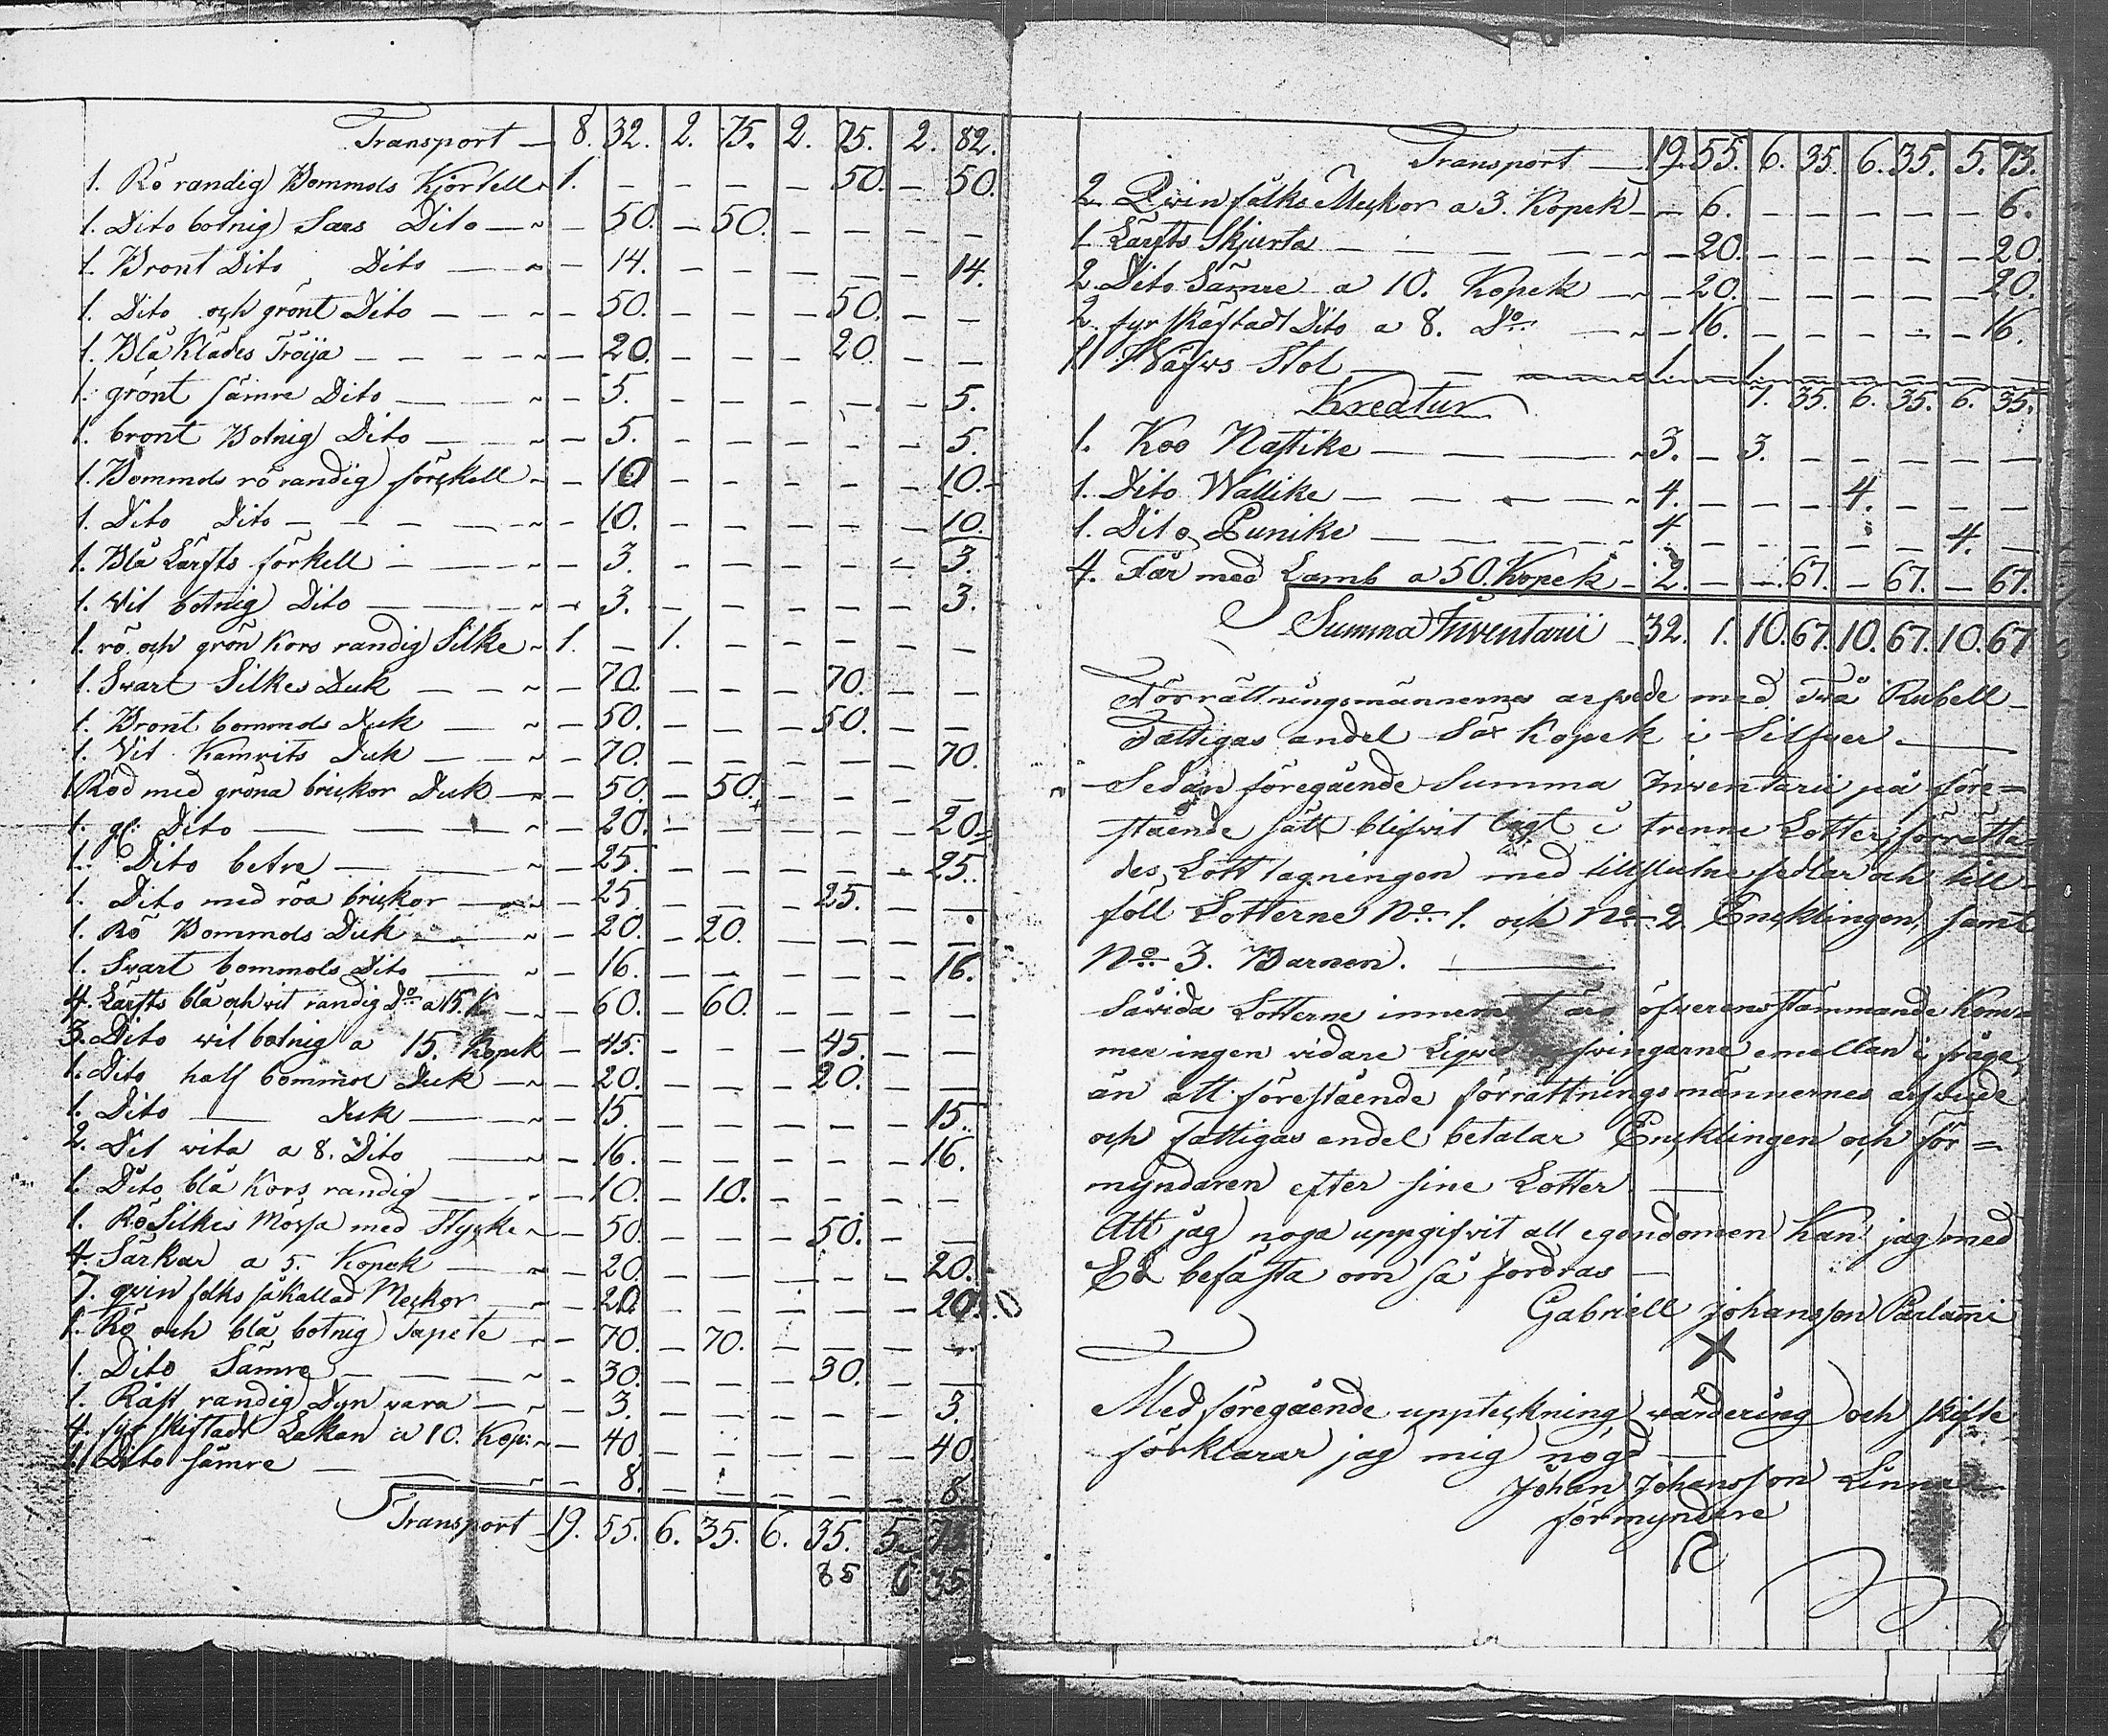 Transport — 8. 32. 2. 75. 2. 75. 2. 82.
1. Rö randig Bommols Kjortell 1. — — — — 50. — 50.
1. Dito botnig Sars Dito — — 50. — 50. — — — —
1. Bront Dito Dito — — 14. — — — — — 14.
1. Dito och grönt Dito — — 50. — — — 50. — —
1. Blå Klädes Tröija — — 20. — — — 20. — —
1. grönt sämre Dito — — 5. — — — — — 5.
1. bront Botnig Dito — — 5. — — — — — 5.
1. Bommols rö randig förkell — 10 — — — — — 10.
1. Dito Dito — — 10. — — — — — 10.
1. Blå Lärfts förkell — — 3. — — — — — 3.
1. Vit botnig Dito — — 3. — — — — — 3.
1. rö och grön Kors randig Silke 1. — 1. — — — — —
1. Svart Silkes Duk — — 70. — — — 70. — —
1. Bront bommols Duk — 50. — — — 50. — —
1. Vit Kamrits Duk — — 70. — — — — — 70.
1 Röd med gröna brickor Duk — 50. — 50. — — — —
1. gl: Dito — — 20. — — — — — 20.
1. Dito betre — — 25. — — — — — 25.
1. Dito med röa brickor — 25. — — — 25. — —
1. Rö Bommols Duk — 20. — 20. — — — —
1. Svart bommols Dito — 16. — — — — — 16.
4. Lärfts blå och vit randig Do a 15. K — 60. — 60. — — — —
3. Dito vit botnig a 15. Kopek — 45. — — — 45. — —
1. Dito half bommol Duk — 20. — — — 20. — —
1. Dito — Duk — 15. — — — — — 15.
2. Dit vita a 8. Dito — 16. — — — — — 16.
1. Dito blå Kors randig — 10. — 10. — — — —
1. Rö Silkes Mössa med Stycke — 50. — — — 50. — —
4. Särkar a 5. Kopek — 20. — — — — — 20.
7. qvin folks såkallad Meckor — 20. — — — — — 20.
1. Rö och blå botnig Tapete — 70. — 70. — — — —
1. Dito Sämre — 30. — — — 30. — —
1. Råst randig Dyn vara — 3. — — — — — 3.
4. fyr skiftadt Lakan a 10. Kop: — 40. — — — — — 40.
1. Dito sämre — 8. — — — — — 8.
Transport 19. 55. 6. 35. 6. 35. 5. 73.
85 6 35
Transport — 19. 55. 6. 35. 6. 35. 5. 73.
2. Qvinfolks Meckor a 3. Kopek — 6. — — — — — 6.
1. Lärfts Skjorta — — 20. — — — — — 20.
2. Dito Sämre a 10. Kopek — 20. — — — — — 20.
2. fyr skäftadt Dito a 8. Do — 16. — — — — — 16.
1. Wäfvs Stol — 1. — 1. — — — — —
Kreatur 7. 35. 6. 35. 6. 35.
1. Koo Nastike — 3. — 3. — — — — —
1. Dito Wallike — 4. — — — 4. — — —
1. Dito Punike — 4. — — — — — 4. —
4. Får med Lamb a 50. Kopek — 2. — — 67. — 67. — 67.
Summa Inventarii 32. 1. 10. 67. 10. 67. 10. 67
Förrättningsmännernes arfvode med Två Rubell
Fattigas andel Sex Kopek i Silfver —
Sedan föregående Summa Inventarii på före=
stående sätt blifvit lagt i trenne Lotter, förrätta=
des Lott tagningen med tillslutne sedlar och till=
föll Lotterne No 1. och No 2. Encklingen, samt
No 3. Barnen. —
Såvida Lotterne innemot äro öfverensstämmande Kom=
mer ingen vidare emellan i fråga,
än att förestående förrättningsmännernes arfvude
och fattigas andel betalar Encklingen och för=
myndaren efter sine Lotter —
Att jag noga uppgifvit all egendomen Kan jag med
Ed befästa om så fordras —
Gabriell Johansson Parlami
X
Med föregående uppteckning värdering och skifte
förklarar jag mig nögd —
Johan Johansson
förmyndare